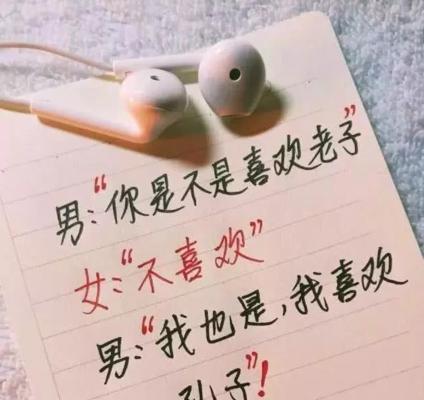 男：“你是不是喜欢老子”
女：“不喜欢”
男：“我也是，我喜欢
孔子”！